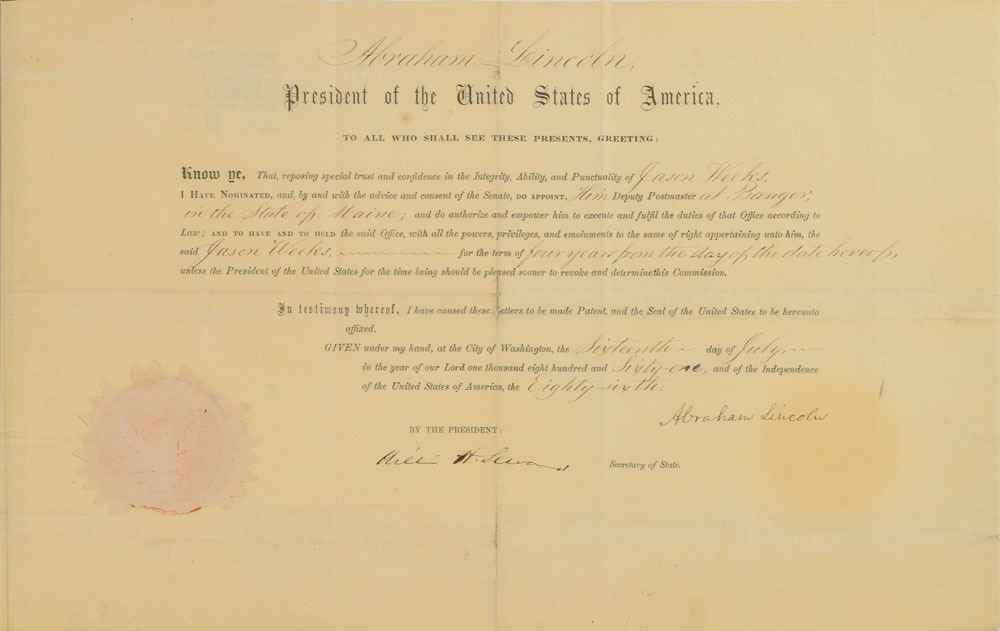 Abraham Lincoln,
President of the United States of America,
TO ALL WHO SHALL SEE THESE PRESENTS, GREETING:
Know ye, That, reposing special trust and confidence in the Integrity, Ability, and Punctuality of Jason Weeks,
I HAVE NOMINATED, and, by and with the advice and consent of the Senate, DO APPOINT, Him Deputy Postmaster at Bangor;
in the State of Maine; and do authorize and empower him to execute and fulfil the duties of that Office according to
Law; AND TO HAVE AND TO HOLD the said Office, with all the powers, privileges, and emoluments to the same of right appertaining unto him, the
said Jason Weeks, for the term of four years from the day of the date hereof,
unless the President of the United States for the time being should be pleased sooner to revoke and determine this Commission.
In testimony whereof, I have caused these Letters to be made Patent, and the Seal of the United States to be hereunto
affixed.
GIVEN under my hand, at the City of Washington, the Sixteenth day of July,
in the year of our Lord one thousand eight hundred and Sixty-one, and of the Independence
of the United States of America, the Eighty-sixth.
Abraham Lincoln
BY THE PRESIDENT:
William H. Seward Secretary of State.